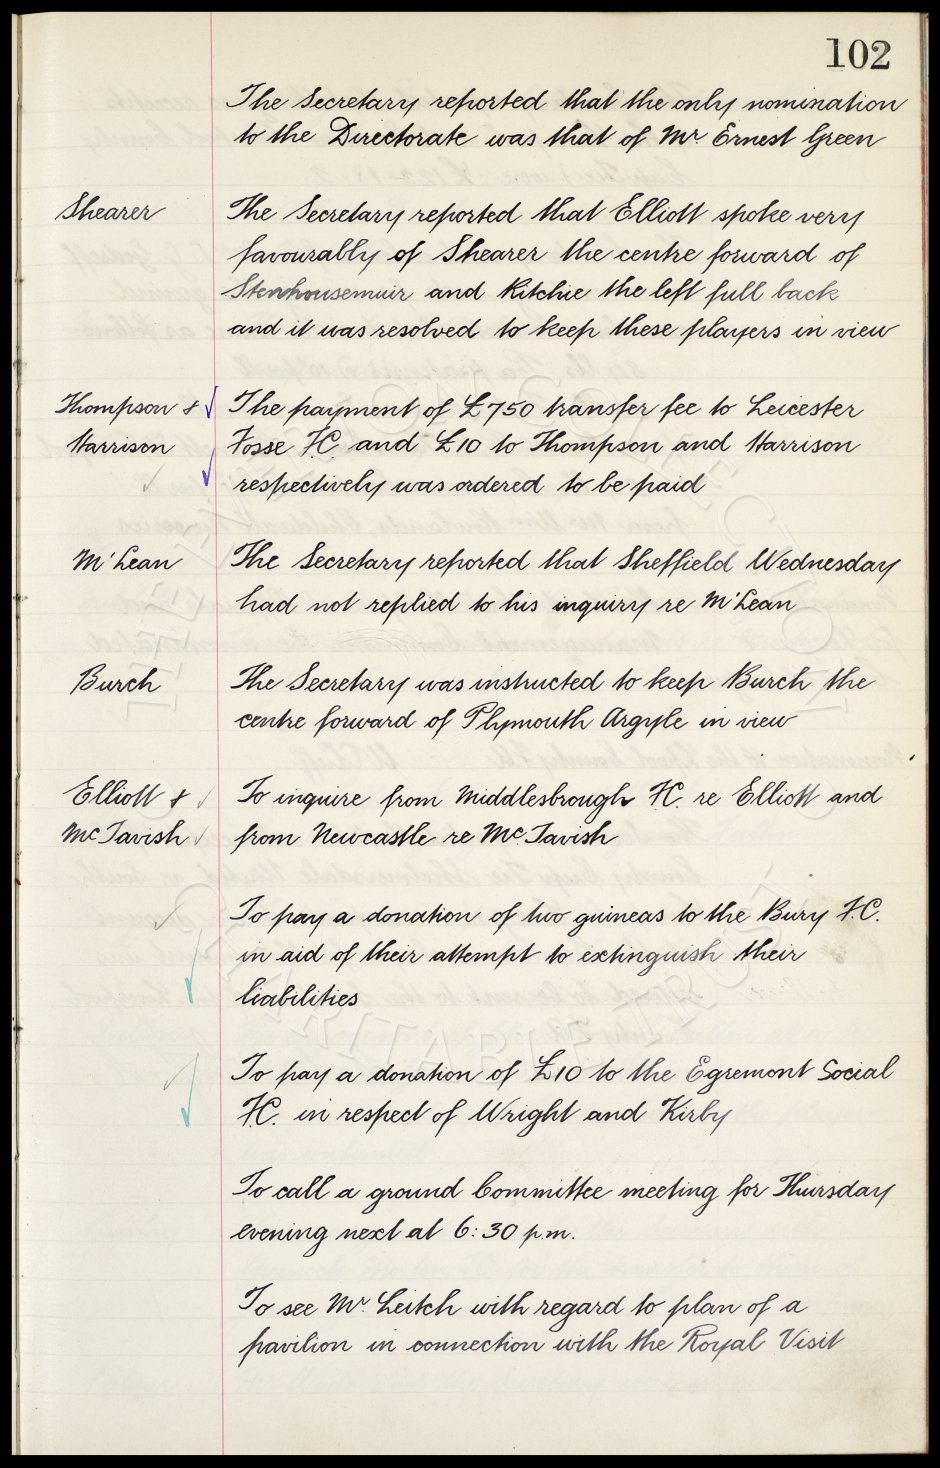 102
The Secretary reported that the only nomination
to the Directorate was that of Mr. Ernest Green
Shearer
The Secretary reported that Elliott spoke very
favourably of Shearer the centre forward of
Stenhousemuir and Kitchie the left full back
and it was resolved to keep these players in view
Thompson &
Harrison
The payment of £750 transfer fee to Leicester
Fosse F.C. and £10 to Thompson and Harrison
respectively was ordered to be paid
M'Lean
The Secretary reported that Sheffield Wednesday
had not replied to his inquiry re M'Lean
Burch
The Secretary was instructed to keep Burch the
centre forward of Plymouth Argyle in view
Elliott &
McTavish
To inquire from Middlesbrough F.C. re Elliott and
from Newcastle re McTavish
To pay a donation of two guineas to the Bury F.C.
in aid of their attempt to extinguish their
liabilities
To pay a donation of £10 to the Egremont Social
F.C. in respect of Wright and Kirby
To call a ground Committee meeting for Thursday
evening next at 6:30 p.m.
To see Mr. Leitch with regard to plan of a
pavilion in connection with the Royal Visit